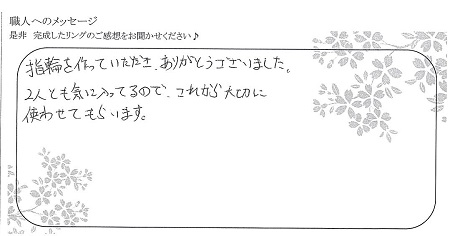 職人へのメッセージ
是非 完成したリングのご感想をお聞かせください♪
指輪を作っていただき、ありがとうございました。
2人とも気に入ってるので、これから大切に
使わせてもらいます。